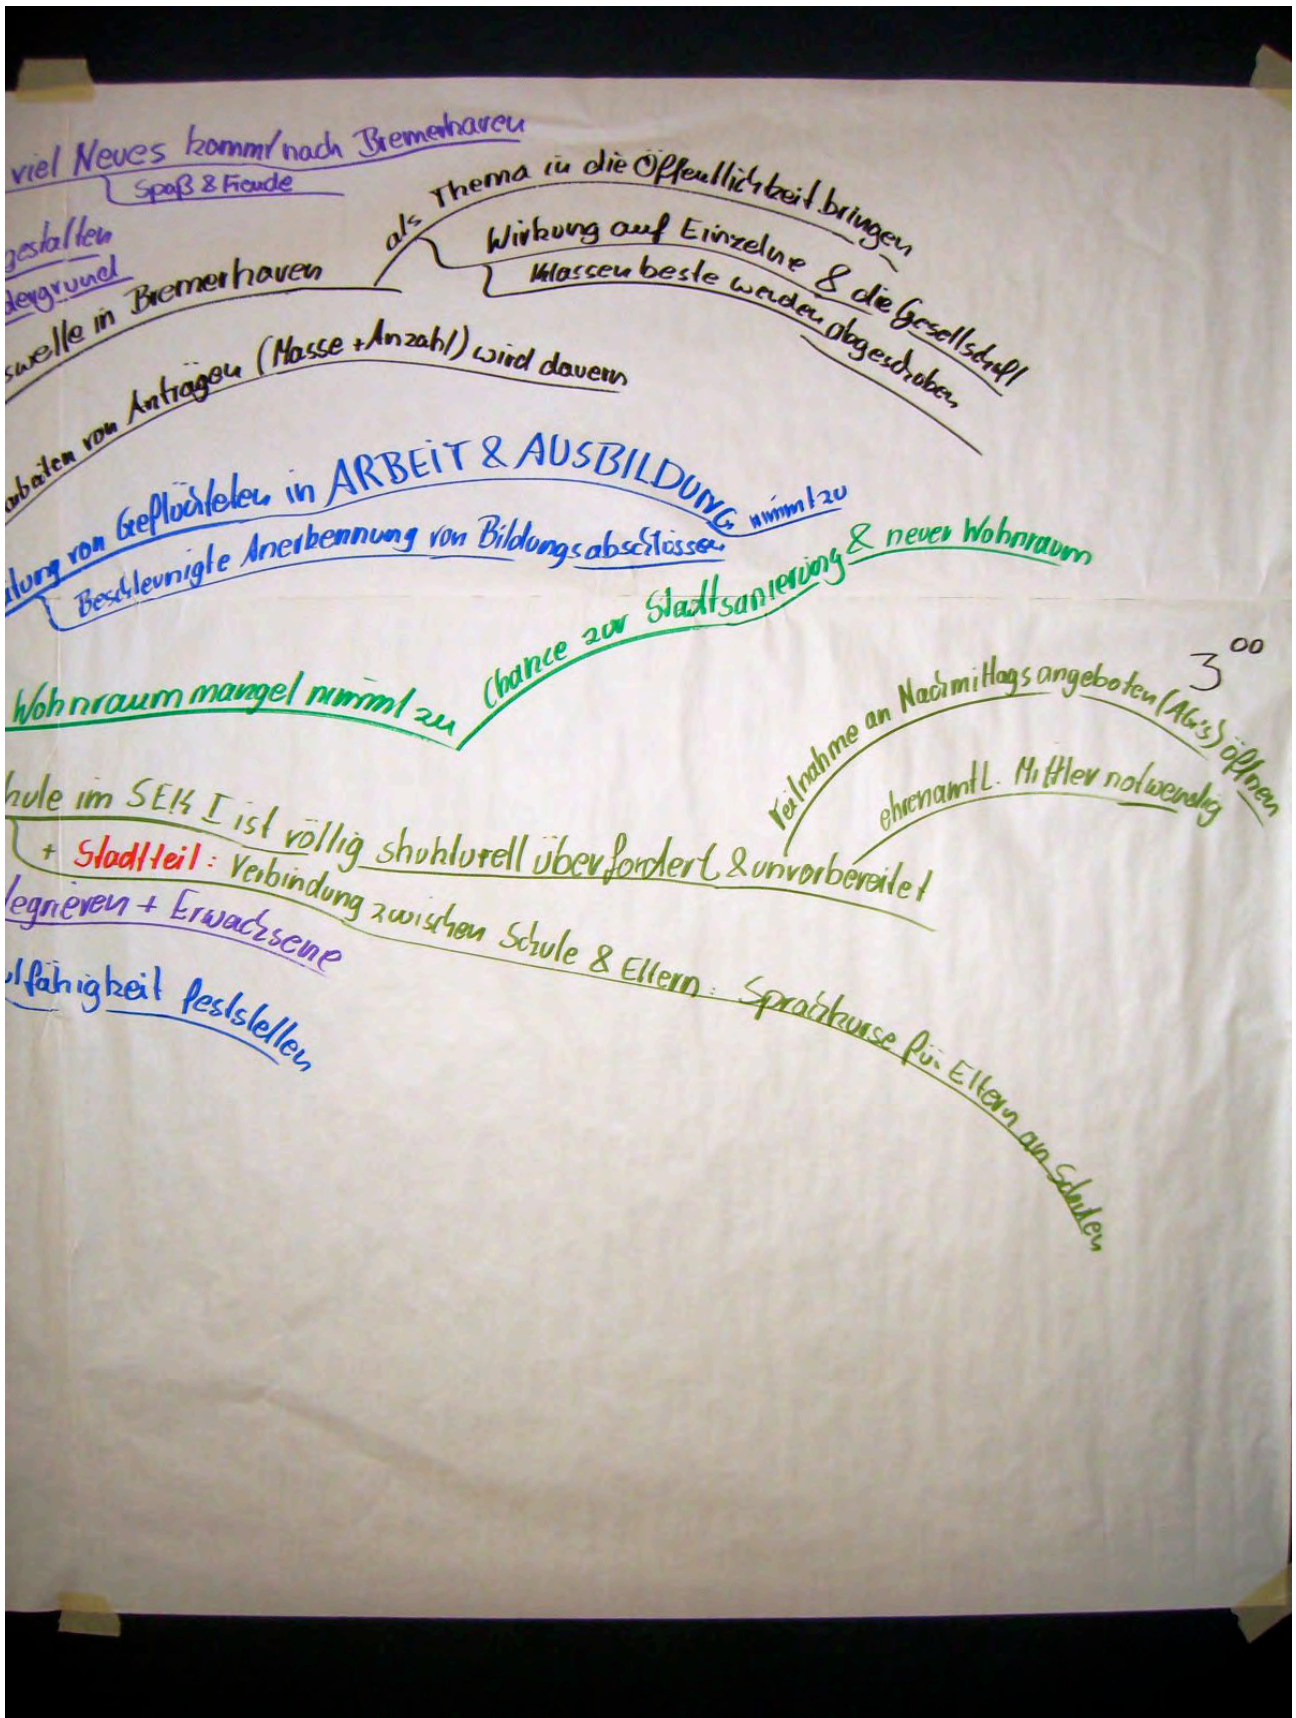 viel Neues kommt nach Bremerhaven
Spaß & Freude
gestalten
dergrund
swelle in Bremerhaven
als Thema in die Öffentlichkeit bringen
Wirkung auf Einzelne & die Gesellschaft
Klassenbeste werden abgeschoben
arbeiten von Anträgen (Masse + Anzahl) wird dauern
lung von Geflüchteten in ARBEIT & AUSBILDUNG nimmt zu
Beschleunigte Anerkennung von Bildungsabschlüssen
Wohnraummangel nimmt zu
Chance zur Stadtsanierung & neuer Wohnraum
3 00
hule im SEK I ist völlig strukturell überfordert & unvorbereitet
Teilnahme an Nachmittagsangeboten (AG's) öffnen
ehrenamtl. Mittler notwendig
+ Stadtteil: Verbindung zwischen Schule & Eltern: Sprachkurse für Eltern an Schulen
tegrieren + Erwachsene
lfähigkeit feststellen